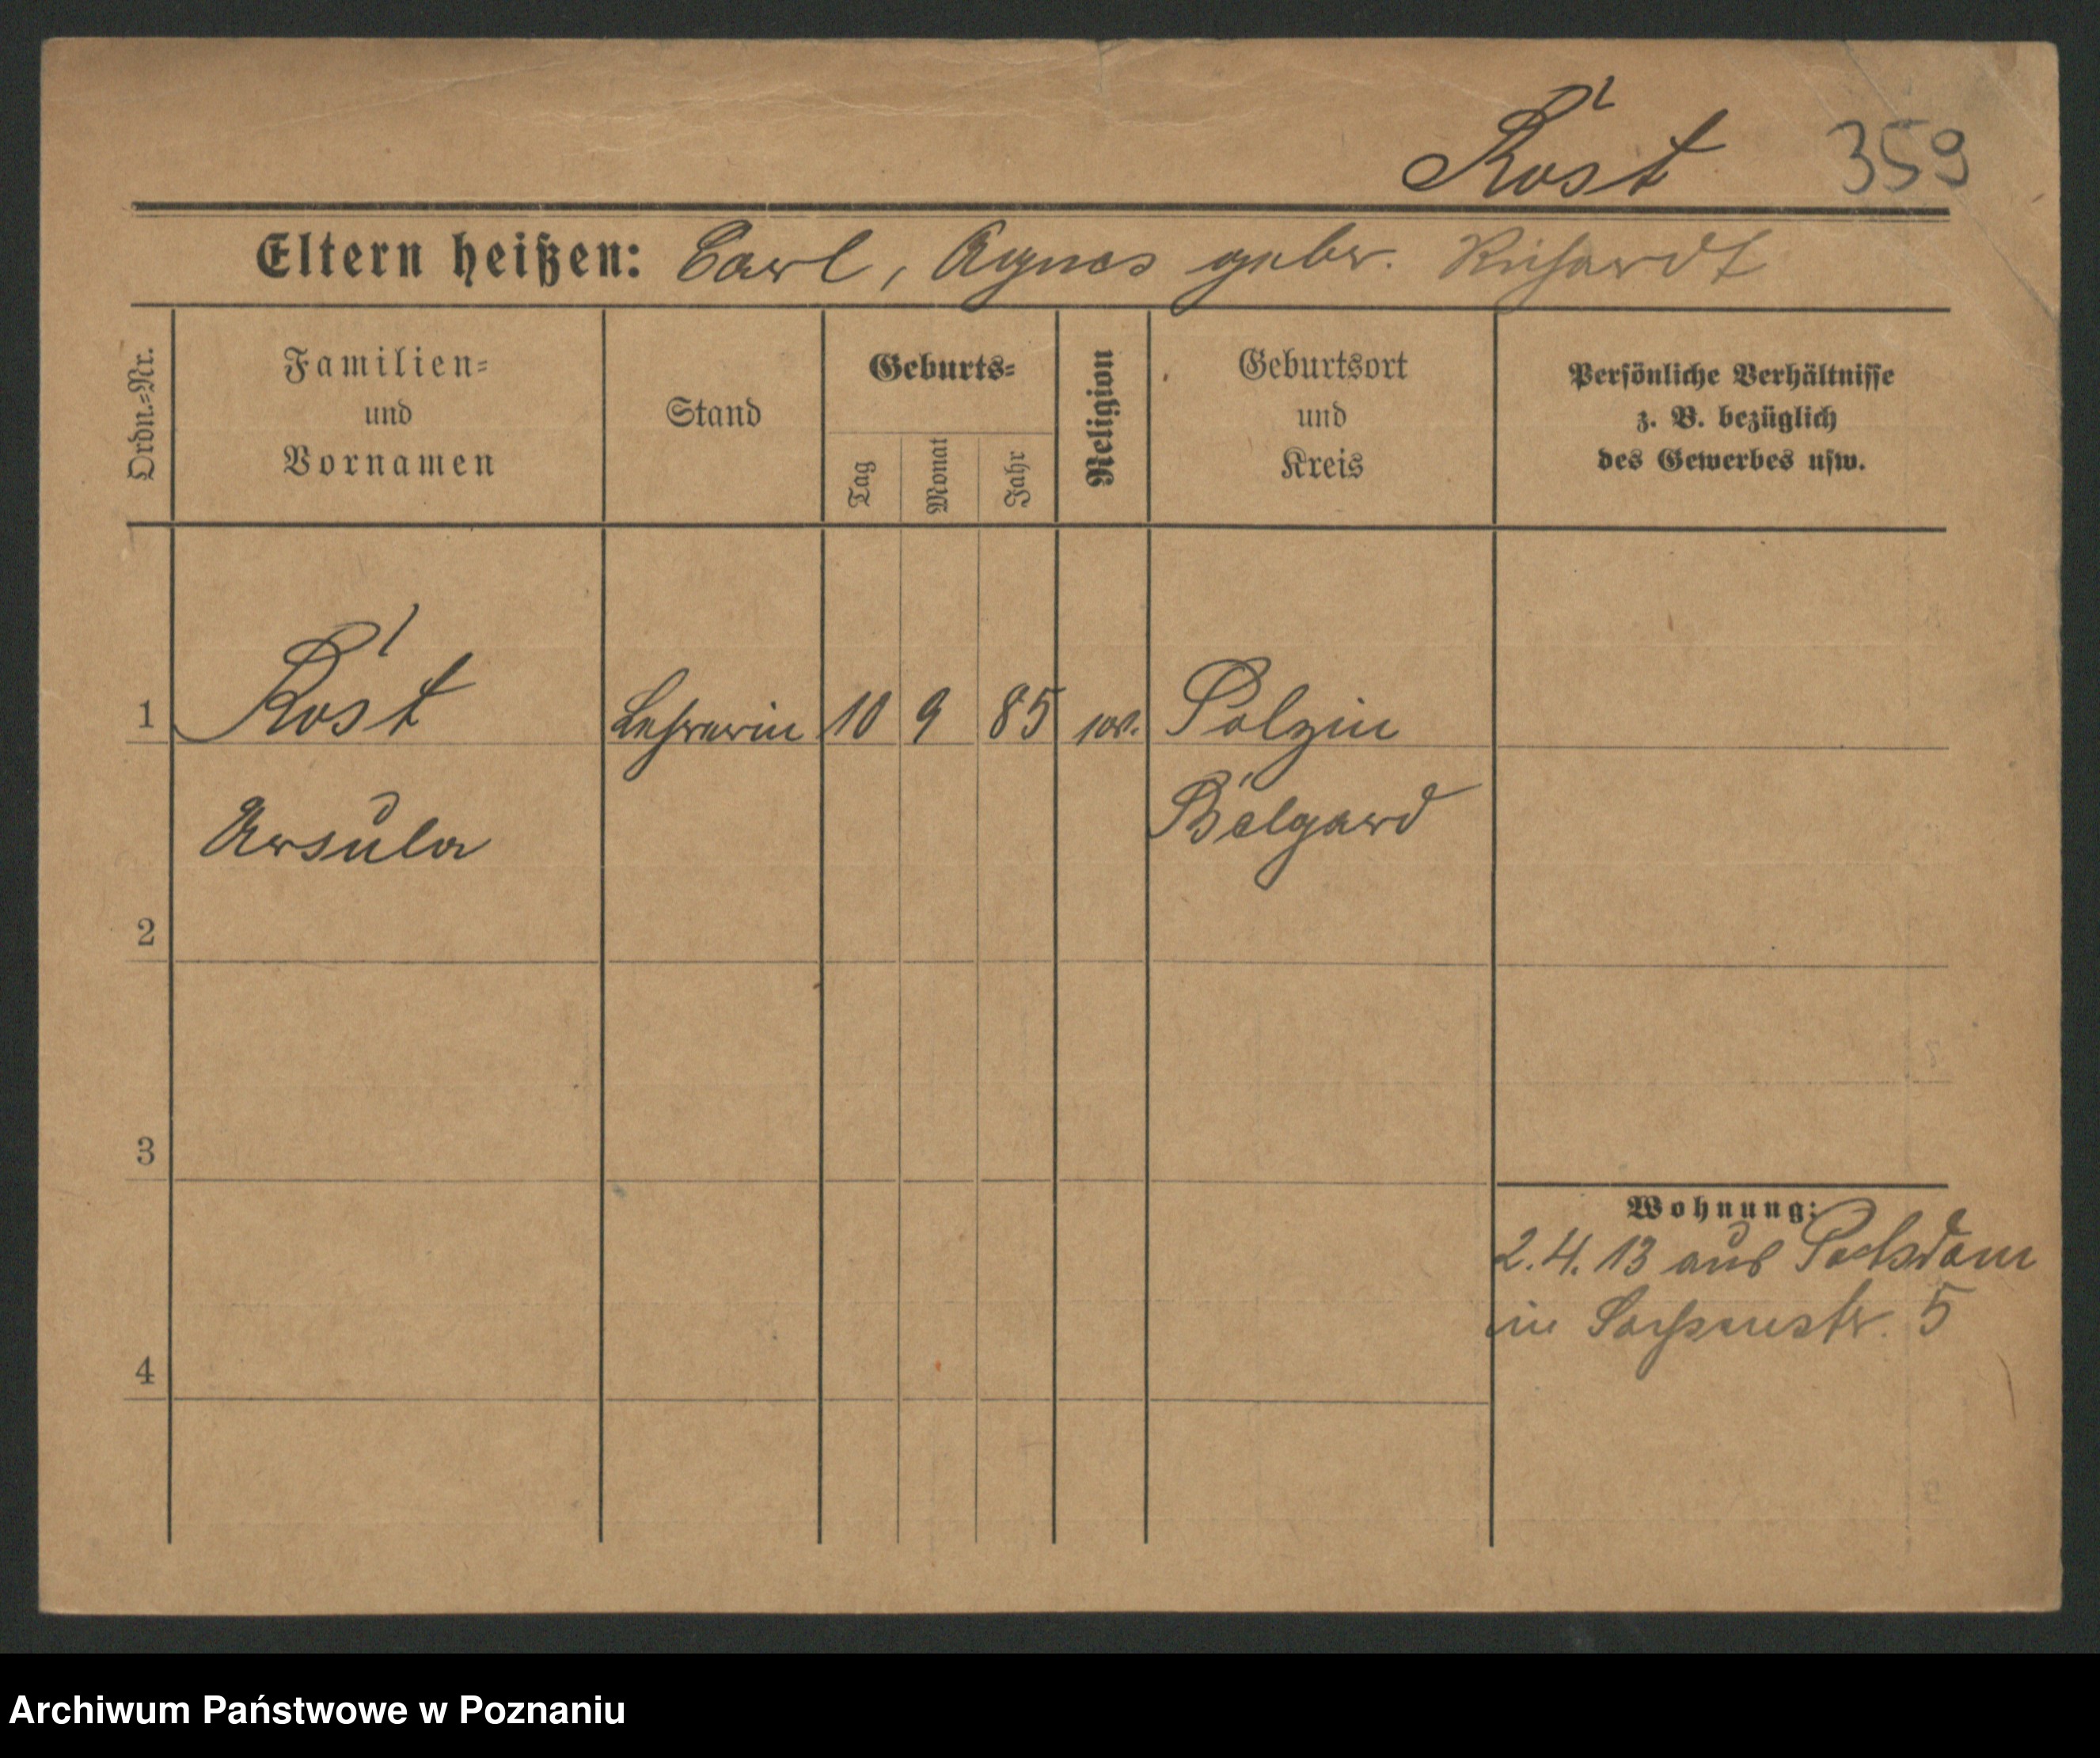 Rost 359
Eltern heißen: Carl, Agnes gebr. Richardt
Ordn.=Nr.
Familien=
und
Vornamen
Stand
Geburts=
Tag
Monat
Jahr
Religion
Geburtsort
und
Kreis
Persönliche Verhältnisse
z. B. bezüglich
des Gewerbes usw.
1 Rost Lehrerin 10 9 85 ev. Polzin
Ursula Belgard
2
3
4
Wohnung:
2.4.13 aus Potsdam
in 5
Archiwum Państwowe w Poznaniu